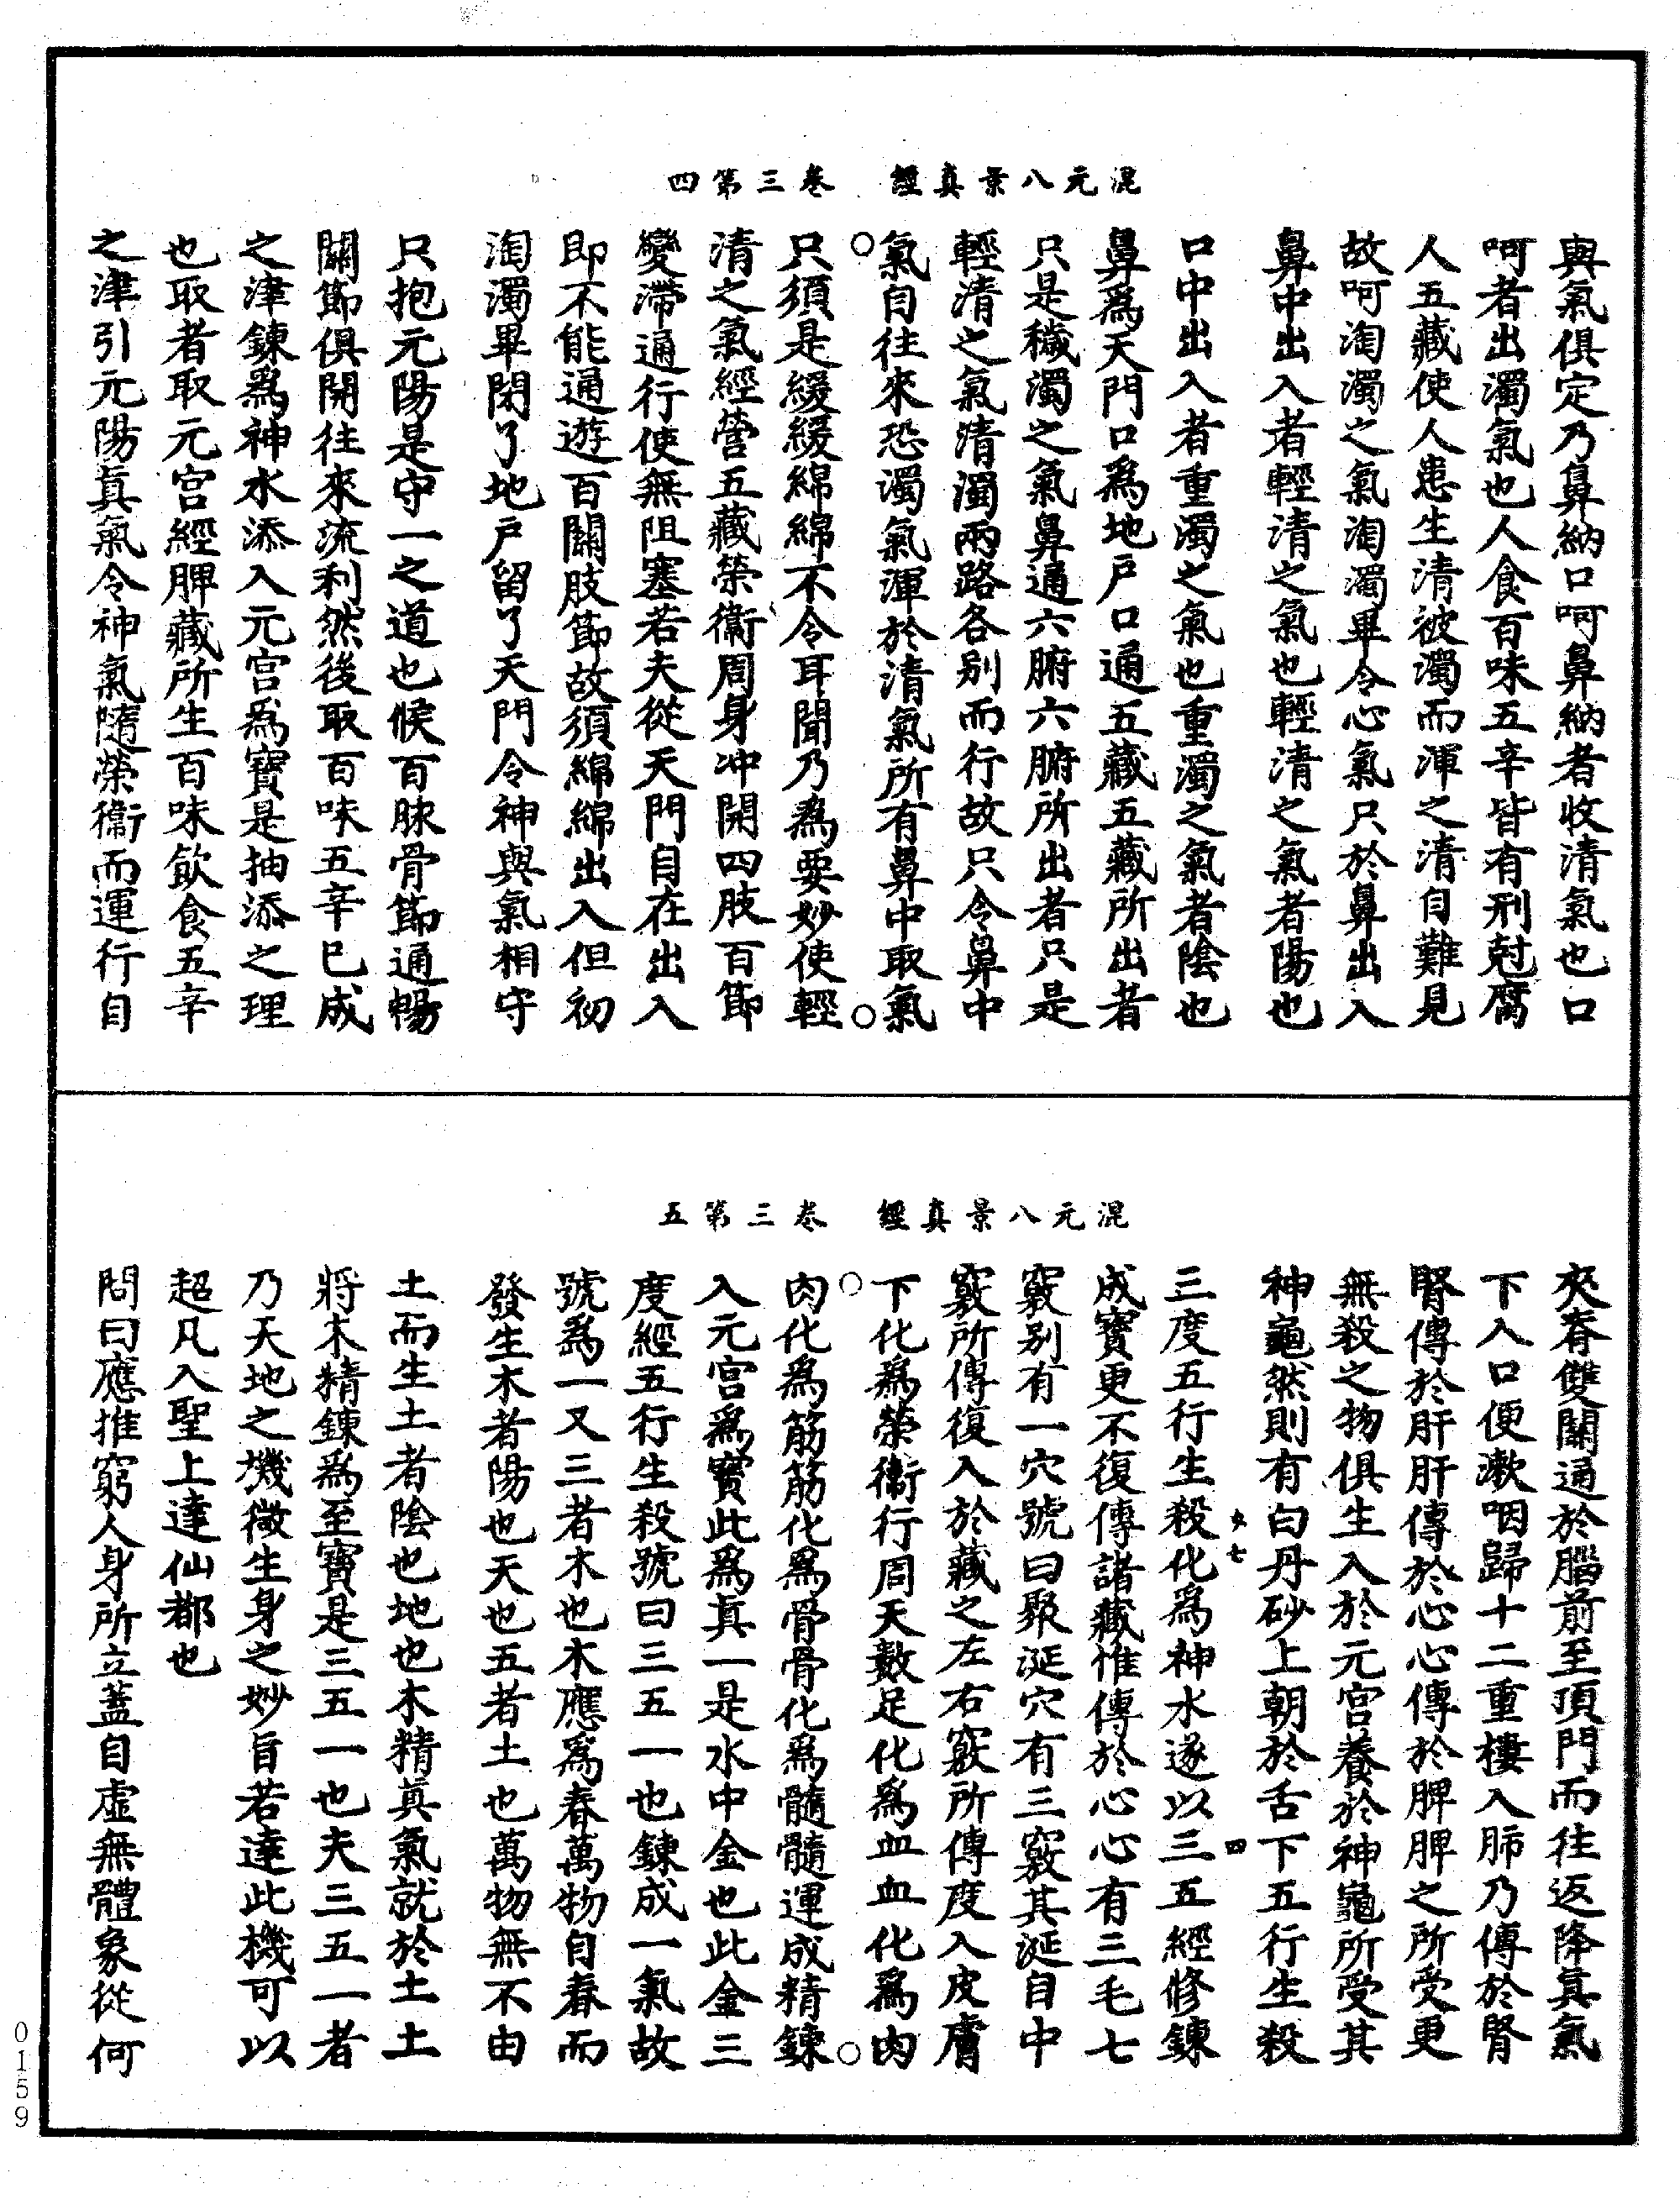 混元八景真經　卷三第四
與氣俱定乃鼻納口呵鼻納者收清氣也口
呵者出濁氣也人食百味五辛皆有刑尅腐
人五藏使人患生清被濁而渾之清自難見
故呵淘濁之氣淘濁畢令心氣只於鼻出入
鼻中出入者輕清之氣也輕清之氣者陽也
口中出入者重濁之氣也重濁之氣者陰也
鼻爲天門口爲地戶口通五藏五藏所出者
只是穢濁之氣鼻通六腑六腑所出者只是
輕清之氣清濁兩路各别而行故只令鼻中
氣自往來恐濁氣渾於清氣所有鼻中取氣
只須是緩緩綿綿不令耳聞乃爲要妙使輕
清之氣經營五藏榮衞周身冲開四肢百節
變滯通行使無阻塞若夫從天門自在出入
即不能通遊百關肢節故須綿綿出入但初
淘濁畢閉了地戶留了天門令神與氣相守
只抱元陽是守一之道也候百脉骨節通暢
關節俱開往來流利然後取百味五辛已成
之津鍊爲神水添入元宫爲寶是抽添之理
也取者取元宫經脾藏所生百味飲食五辛
之津引元陽真氣令神氣隨榮衞而運行自
混元八景真經　卷三第五
夾脊雙關通於腦前至頂門而往返降真氣
下入口便漱咽歸十二重樓入肺乃傳於腎
腎傳於肝肝傳於心心傳於脾脾之所受更
無殺之物俱生入於元宫養於神龜所受其
神龜然則有曰丹砂上朝於舌下五行生殺
女七　四
三度五行生殺化爲神水遂以三五經修鍊
成寶更不復傳諸藏惟傳於心心有三毛七
竅别有一穴號曰聚涎穴有三竅其涎自中
竅所傳復入於藏之左右竅所傳度入皮膚
下化爲榮衞行周天數足化爲血血化爲肉
肉化爲筋筋化爲骨骨化爲髓髓運成精鍊
入元宫爲寶此爲真一是水中金也此金三
度經五行生殺號曰三五一也鍊成一氣故
號爲一又三者木也木應爲春萬物自春而
發生木者陽也天也五者土也萬物無不由
土而生土者陰也地也木精真氣就於土土
將木精鍊爲至寶是三五一也夫三五一者
乃天地之機微生身之妙旨若達此機可以
超凡入聖上達仙都也
問曰應推窮人身所立蓋自虛無體象從何
0159